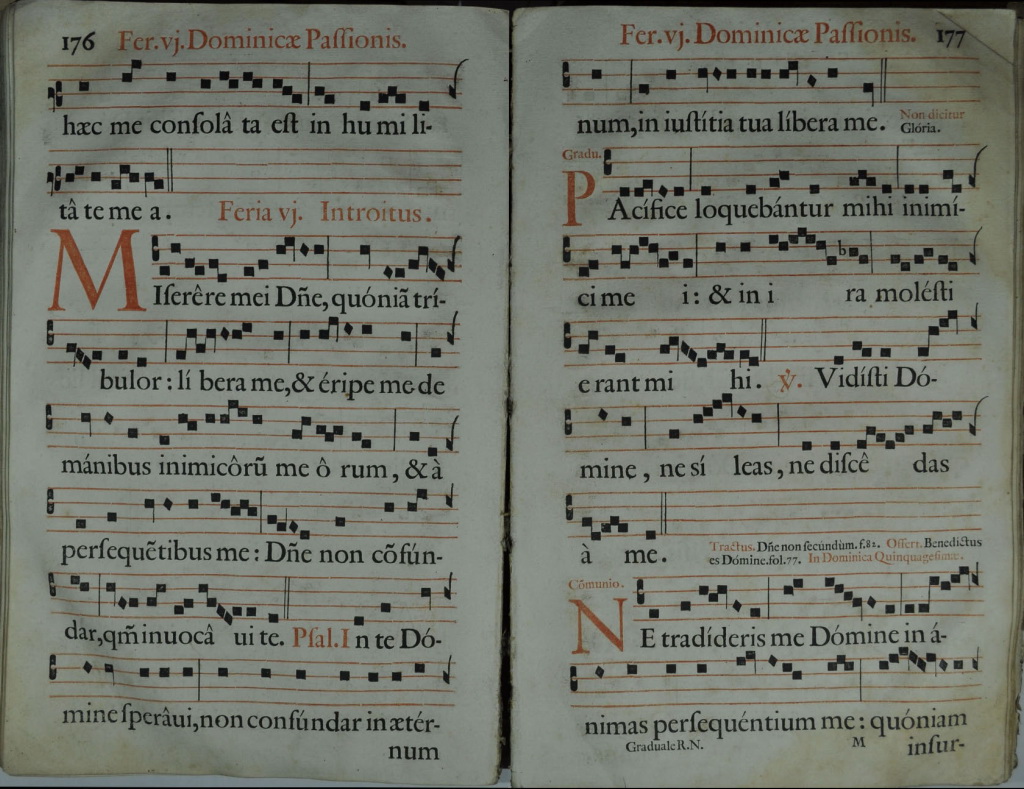 176 Fer.vj. Dominicæ Paſſionis.
hæc me conſolâ ta eſt in hu mi li-
tâ te me a. Feria vj. Introitus.
MIſerêre mei Dñe, quóniã trí-
bulor : lí bera me, & éripe me de
mánibus inimicôrũ me ô rum, & à
perſequẽtibus me : Dñe non cõfún-
dar, qm̃ inuocâ ui te. Pſal. In te Dó-
mine ſperâui, non confúndar in ætér-
num
Fer.vj. Dominicæ Paſſionis. 177
num, in iuſtítia tua líbera me. Non dicitur
Glória.
Gradu.
PAcífice loquebántur mihi inimí-
ci me i : & in i ra moléſti
e rant mi hi. ℣. Vidíſti Dó-
mine, ne sí leas, ne diſcê das
à me. Tractus. Dñe non secúndùm. f.82. Offert. Benedíctus
es Dómine. fol.77. In Dominica Quinquagesimæ.
Cõmunio.
NE tradíderis me Dómine in á-
nimas perſequéntium me : quóniam
Graduale R.N. M inſur-